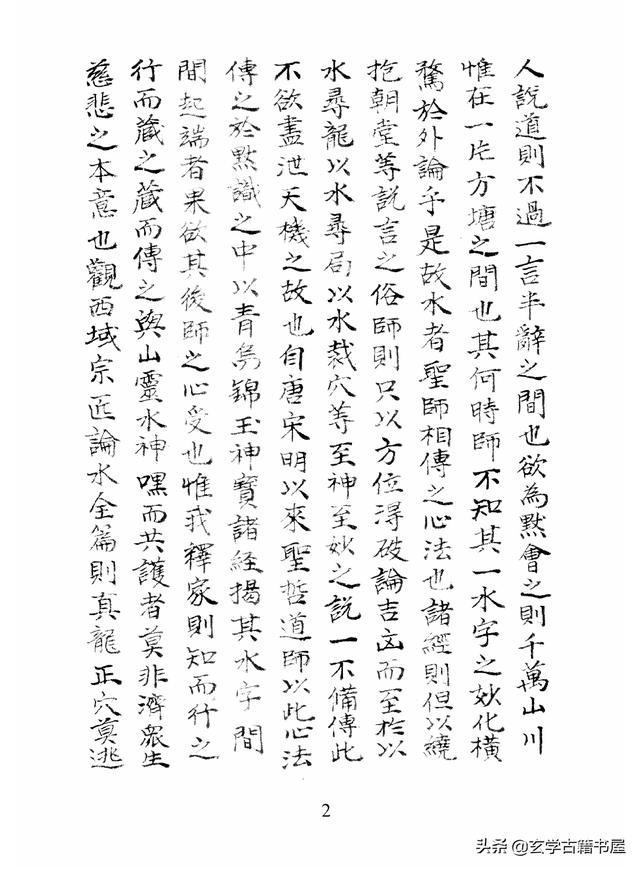 人說道則不過一言半辭之間也欲為默會之則千萬山川
惟在一片方塘之間也其何時師不知其一水字之妙化橫
騖於外論乎是故水者聖師相傳之心法也諸經則但以繞
抱朝堂等說言之俗師則只以方位得破論吉凶而至於以
水尋龍以水尋局以水裁穴等至神至妙之說一不備傳此
不欲盡泄天機之故也自唐宋明以來聖哲道師以此心法
傳之於默識之中以青烏錦玉神寶諸經揚其水字間
間起端者果欲其後師之心受也惟我釋家則知而行之
行而藏之藏而傳之與山靈水神嘿而共護者莫非濟眾生
慈悲之本意也觀西域宗匠論水全篇則真龍正穴莫逃
2
头条 @玄学古籍书屋